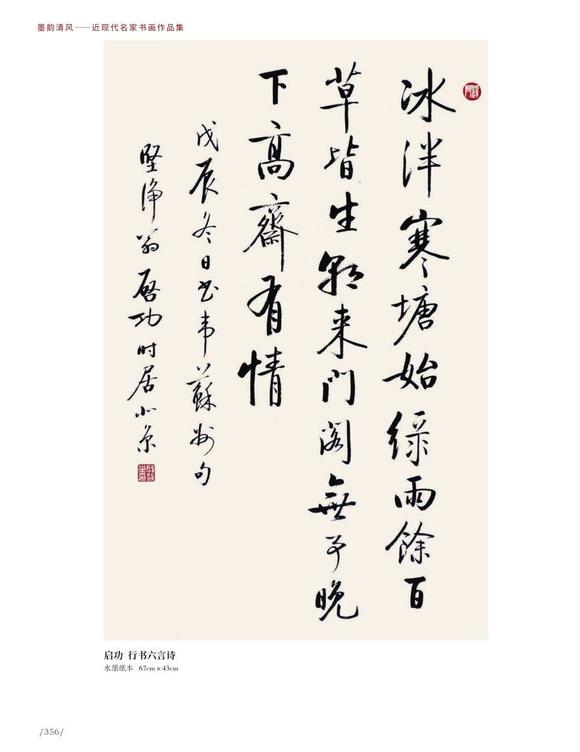 墨韵清风——近现代名家书画作品集
冰泮寒塘始緑雨餘百
草皆生朝来門閣無事晚
下高齋有情
戊辰冬日书韦蘇州句
堅净翁啓功时居北京
启功 行书六言诗
水墨纸本 67cm×43cm
/356/